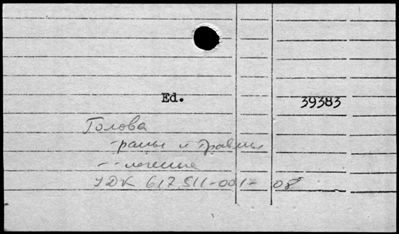 Ed. 39383
Голова
- раны и травмы
- - лечение
УДК 617.511-001-08